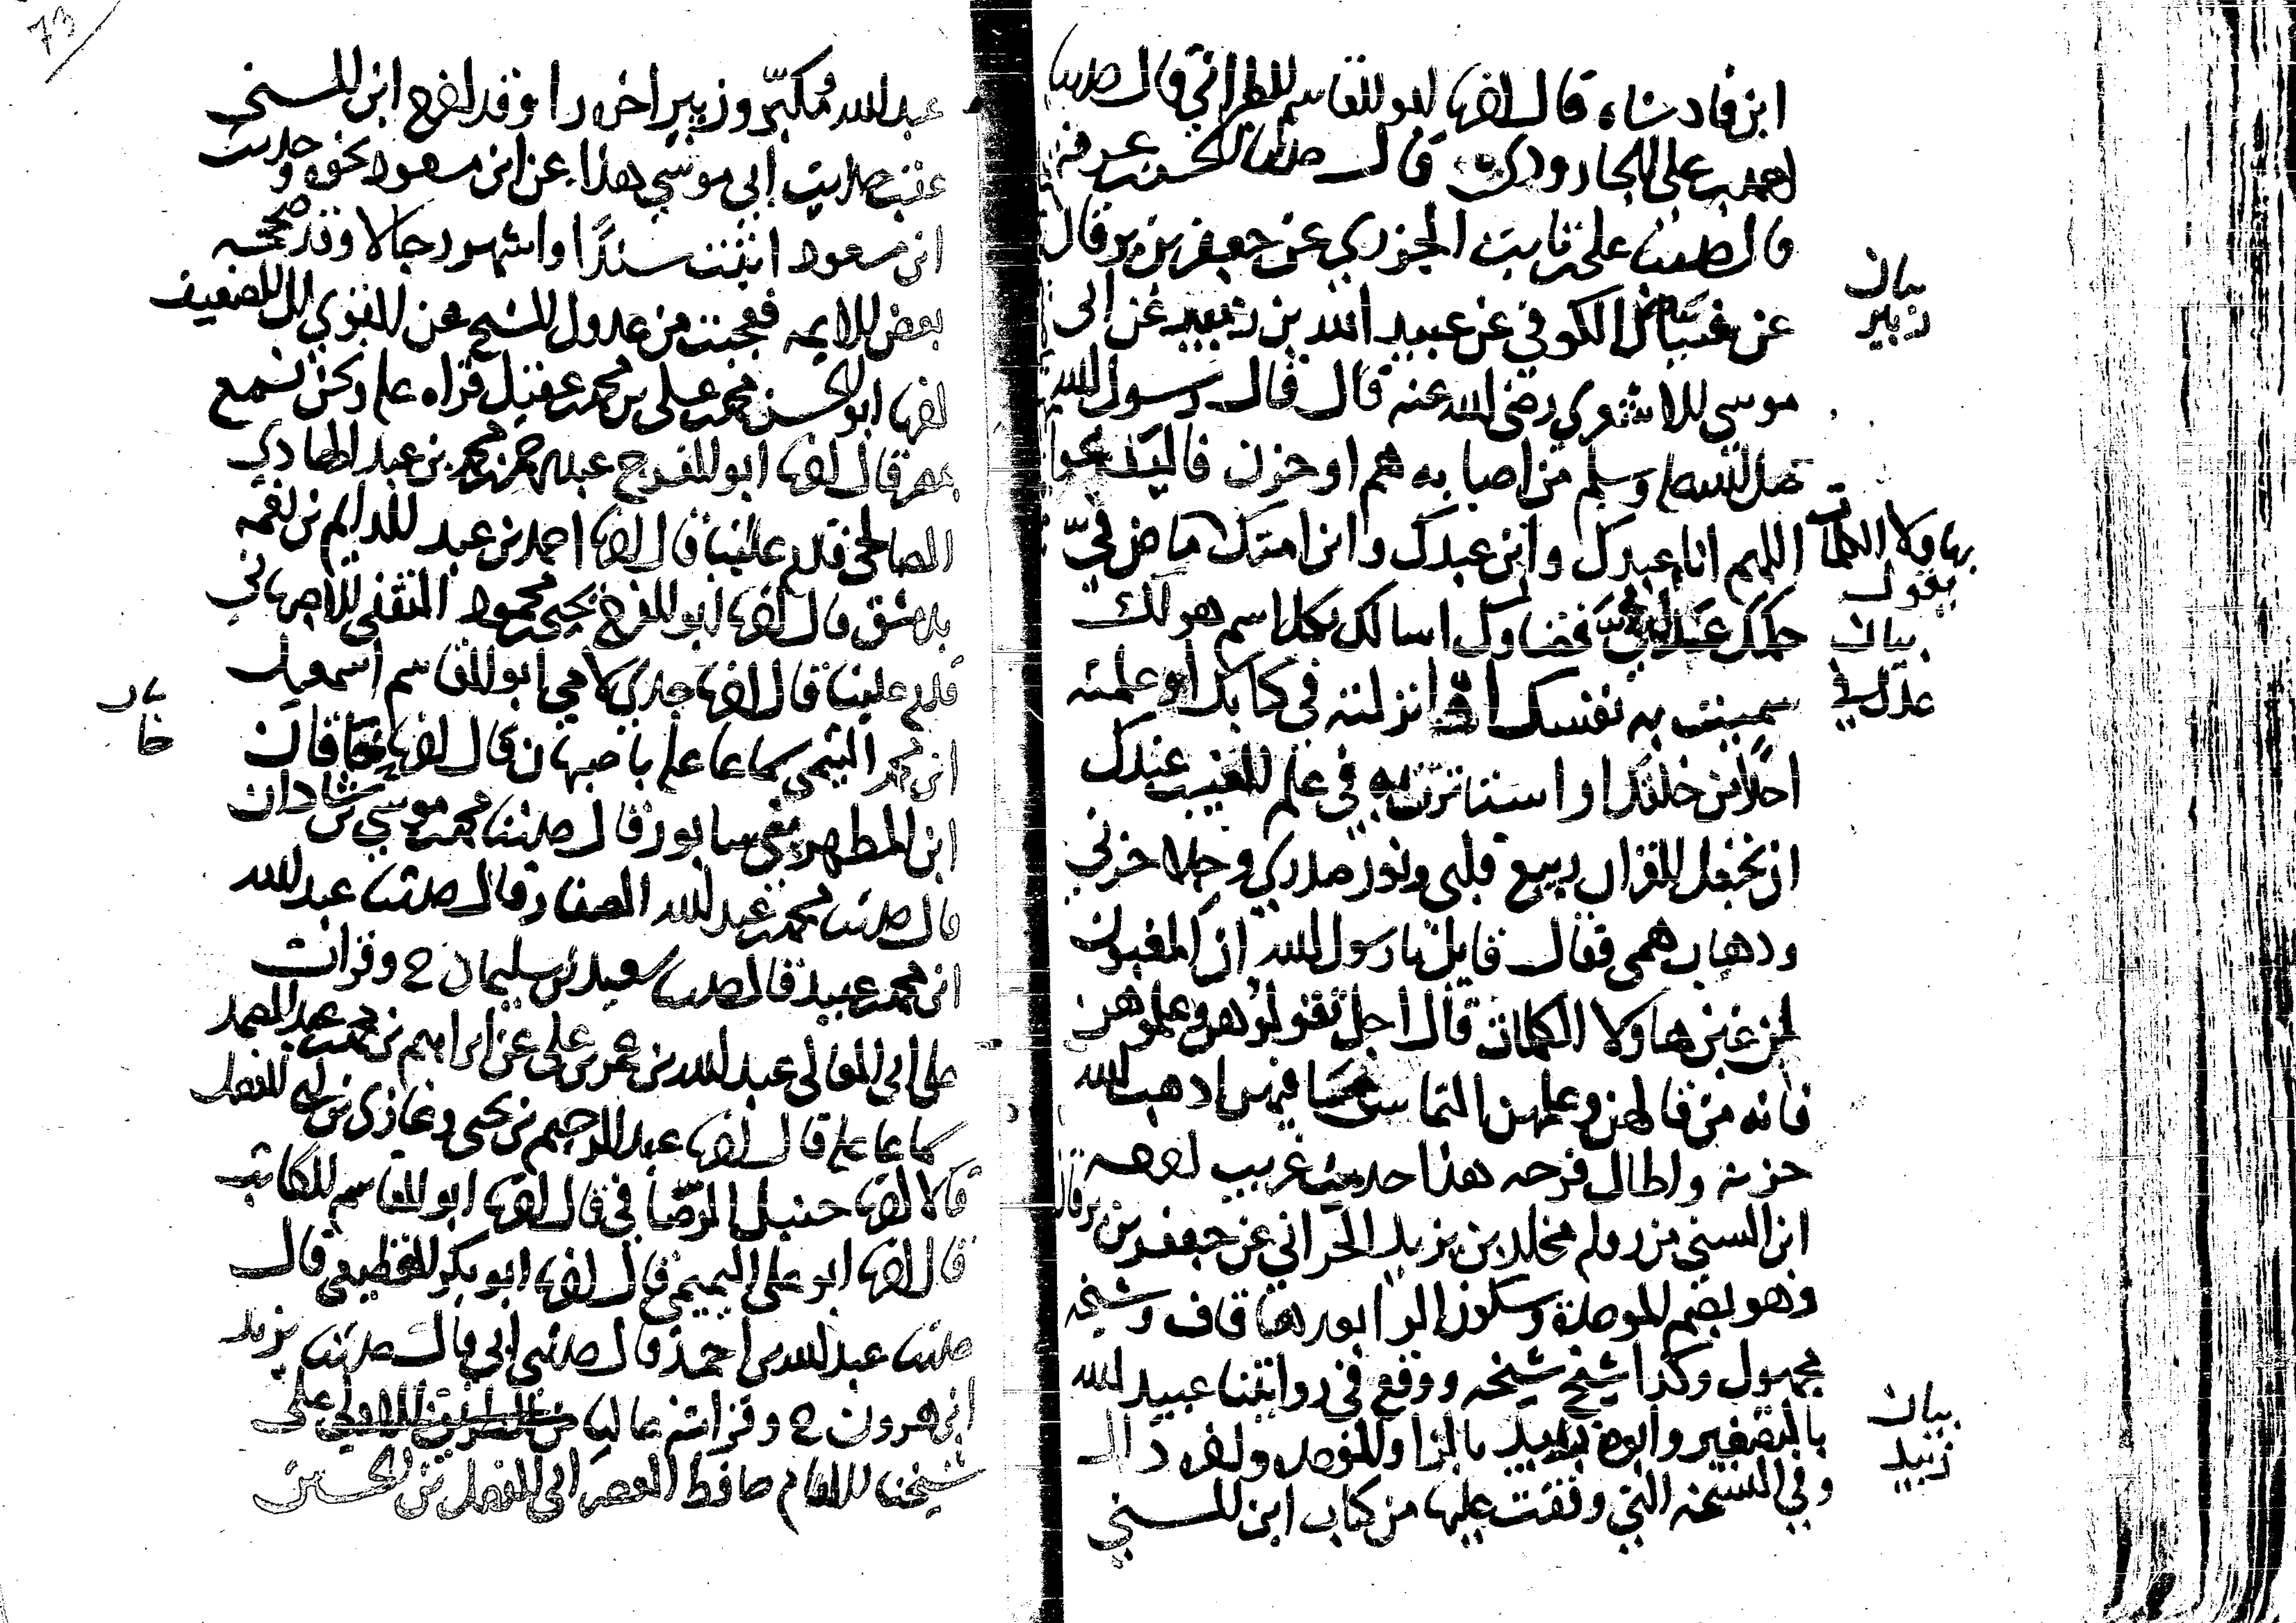 ابن فادشاه قال انا ابو القاسم الطبراني قال حدثنا
احمد بن علي الجارودي قال حدثنا الحسن بن عرفة
قال حدثنا علي بن ثابت الجزري عن جعفر بن برقان
عن فياض الكوفي عن عبيد الله بن زبيد عن ابي
موسي الاشعري رضي الله عنه قال قال رسول الله
صلى الله عليه وسلم من اصابه هم او حزن فاليدعوا
بهاولا الكلمات يقول
اللهم انا عبدك وابن عبدك وابن امتك ماض فيّ
حكمك عدل فيّ قضاوك اسالك بكل اسم هو لك
سميت به نفسك او انزلته في كتابك او علمته
احدًا من خلقك او استاثرت به في علم الغيب عندك
ان تجعل القران ربيع قلبي ونور صدري وجلا حزني
وذهاب همي فقال قايل يا رسول الله ان المغبون
لمن غبن هاولا الكلمات قال اجل فقولوهن وعلموهن
فانه من قالهن وعلمهن التماس ما فيهن اذهب الله
حزنه واطال فرحه هذا حديث غريب اخرجه
ابن السني من رواية مخلد بن يزيد الحراني عن جعفر بن برقان
وهو بضم الموحدة وسكون الرا بعدها قاف وشيخه
مجهول وكذا شيخ شيخه ووقع في روايتنا عبيد الله
بالتصغير وابوه زبيد بالزا والموحدة واخره دال
وفي النسخة التي وقفت عليها من كتاب ابن السني
بيان
زبير
بيان
عدل في
بيان
زبيد
73
عبد الله مُكبّر وزبير اخره را وقد اخرج ابن السني
عقب حديث ابي موسي هذا عن ابن مسعود نحوه وحديث
ابن مسعود اثبت سندًا واشهر رجالا وقد صححه
بعض الايمة فعجبت من عدول الشيخ عن القوي الي الضعيف
انا ابو الحسن محمد بن علي بن محمد بن عقيل قراة عليه ونحن نسمع
بمصر قال انا ابو الفرج عبد الرحمن بن محمد بن عبد الهادي
الصالحي قدم علينا قال انا احمد بن عبد الدايم بن نعمة
بدمشق قال انا ابو الفرج يحيي بن محمود الثقفي الاصبهاني
قدم علينا قال انا جدي لامي ابو القاسم اسمعيل
ابن محمد التيمي سماعا عليه باصبهان قال انا
ابن المطهر بنيسابور قال حدثنا محمد بن موسي بن شاذان
قال حدثنا محمد بن عبد الله الصفار قال حدثنا عبد الله
ابن محمد بن عبيد قال حدثنا سعيد بن سليمان ح وقرات
على ابي المعالي عبد الله بن عمر بن علي عن ابراهيم بن محمد بن عبد الصمد
سماعا عليه قال انا عبد الرحيم بن يحيى وغازي بن ابي الفضل
قالا انا حنبل الرصافي قال انا ابو القاسم الكاتب
قال انا ابو علي التميمي قال انا ابو بكر القطيعي قال
حدثنا عبد الله بن احمد قال حدثني ابي قال حدثنا يزيد
ابن هرون ح وقراته عاليا من الطريق الاولي على
شيخنا الامام حافظ العصر ابي الفضل بن الحسين